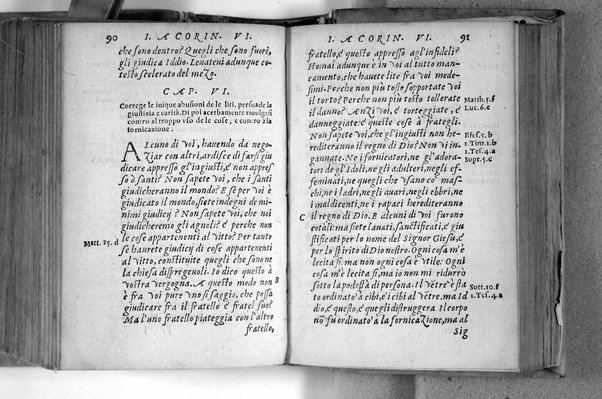 90 I. A CORIN. VI.
che sono dentro? Quegli che sono fuori,
gli giudica Iddio. Leuateui adunque co-
testo scelerato del mezo.
CAP. VI.
Corregge le inique abusioni de le liti, persuade la
giustizia e carità. Di poi acerbamente riuolgesi
contro al troppo vso de le cose, e contro à la
fornicazione.
ALcuno di voi, hauendo da nego-
ziar con altri, ardisce di farsi giu
dicare appresso gl'ingiusti, e non appres
so à santi? Non sapete voi, che i santi
giudicheranno il mondo? E se per voi è
giudicato il mondo, siete indegni de mi-
nimi giudicij? Non sapete voi, che noi
giudicheremo gli agnoli? e perche non
le cose appartenenti al vitto? Per tanto
Matt. 25. d
se haurete giudicij di cose appartenenti
al vitto, constituite quegli che sono ne
la chiesa dispregeuoli. Io dico questo à
vostra vergogna. A questo modo non
B
è fra voi pure vno sì saggio, che possa
giudicare fra il fratello e fratel suo?
Ma l'uno fratello piateggia con l'altro
fratello,
I. A CORIN. VI. 91
fratello, e questo appresso agl'infideli?
Homai adunque è in voi al tutto man-
camento, che hauete lite fra voi mede-
simi. Perche non più tosto sopportate voi
il torto? Perche non più tosto tollerate
Matth. 5. f
il danno? Anzi voi, è torteggiate, è
Luc. 6. c
danneggiate. è queste cose à frategli.
Non sapete voi, che gl'ingiusti non he-
Efes. 5. b
rediteranno il regno di Dio? Non vi in
1. Tim. 1. b
gannate. Ne i fornicatori, ne gl'adora-
1. Tes. 4. a
tori de gl'Idoli, ne gli adulteri, negli ef-
Sopr. 5. c
feminati, ne quegli che vsano co' mas-
chi, ne i ladri, negli auari, negli ebbri, ne
i maldicenti, ne i rapaci herediteranno
C
il regno di Dio. E alcuni di voi furono
cotali: ma siete lauati, sanctificati, e giu
stificati per lo nome del Signor Giesu, e
per lo spirito di Dio nostro. Ogni cosa m'è
lecita, ma non ogni cosa è vtile. Ogni
cosa m'è lecita sì, ma io non mi ridurrò
sotto la podestà di persona. Il vētre è sta
Sott. 10. f
to ordinato à cibi, è i cibi al vētre. ma Id
1. Tes. 4. a
dio, è questo, e quegli distruggera. Il corpo
nō fu ordinato à la fornicazione, ma al
Sig